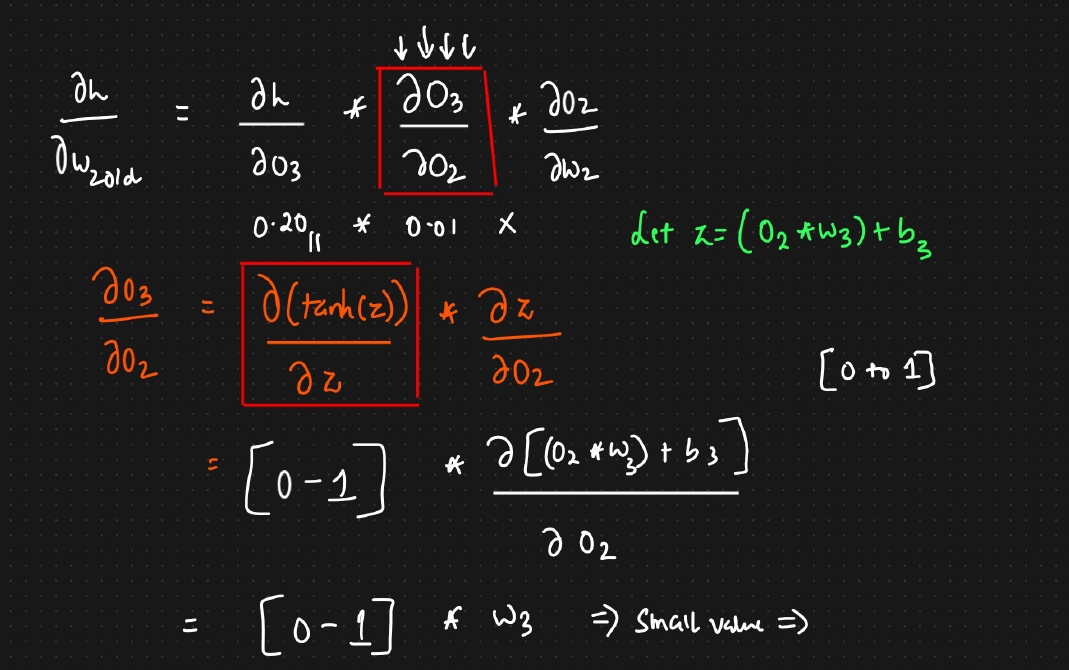 ∂h/∂w₂old = ∂h/∂O₃ * ∂O₃/∂O₂ * ∂O₂/∂w₂
0.20 * 0.01 x
Let z = (O₂ * w₃) + b₃
∂O₃/∂O₂ = ∂(tanh(z))/∂z * ∂z/∂O₂
[0 to 1]
= [0 - 1] * ∂[(O₂ * w₃) + b₃]/∂O₂
= [0 - 1] * w₃ ⇒ Small value ⇒